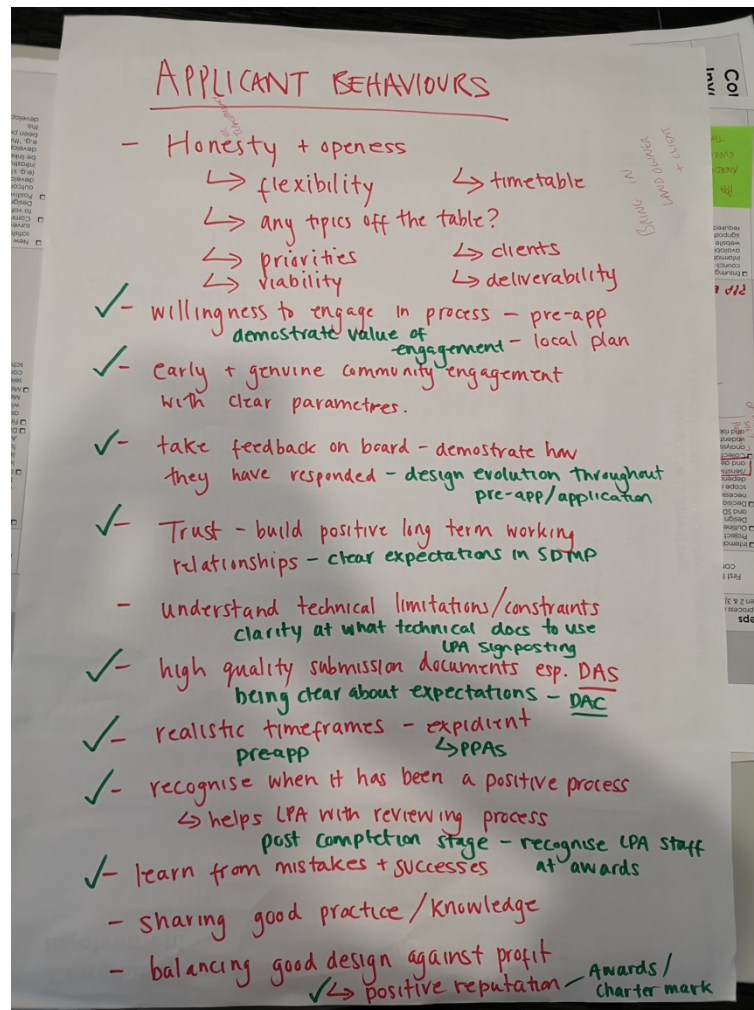 APPLICANT BEHAVIOURS
- Honesty + openess
↳ flexibility ↳ timetable
↳ any topics off the table?
↳ priorities ↳ clients
↳ viability ↳ deliverability
BRING IN
LANDOWNER
+ CLIENT
✓- willingness to engage in process - pre-app
demostrate value of
engagement - local plan
✓- early + genuine community engagement
with clear parametres.
✓- take feedback on board - demostrate how
they have responded - design evolution throughout
pre-app/application
✓- Trust - build positive long term working
relationships - clear expectations in SDMP
- understand technical limitations/constraints
clarity at what technical docs to use
LPA signposting
✓- high quality submission documents esp. DAS
being clear about expectations - DAC
✓- realistic timeframes - expidient
preapp ↳ PPAs
✓- recognise when it has been a positive process
↳ helps LPA with reviewing process
post completion stage - recognise LPA staff
at awards
✓- learn from mistakes + successes
- sharing good practice/knowledge
- balancing good design against profit
✓↳ positive reputation - Awards/
charter mark